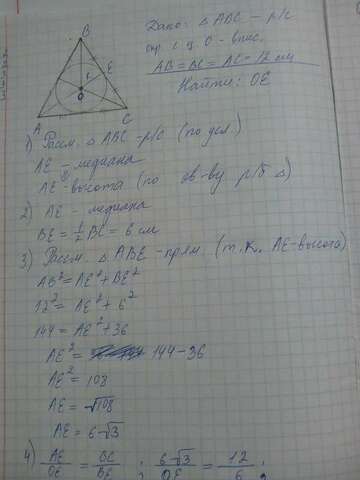 B
E
r
O
A
C
Дано: △ABC – р/с
окр. с ц. О – впис.
AB = BC = AC = 12 см
Найти: OE
1) Рассм. △ABC – р/с (по усл)
AE – медиана
AE – высота (по св-ву р/б △)
2) AE – медиана
BE = 1/2 BC = 6 см
3) Рассм. △ABE – прям. (т.к. AE – высота)
AB² = AE² + BE²
12² = AE² + 6²
144 = AE² + 36
AE² = 144 – 36
AE² = 108
AE = √108
AE = 6√3
4) AE/OE = BC/BE ; 6√3/OE = 12/6 ;